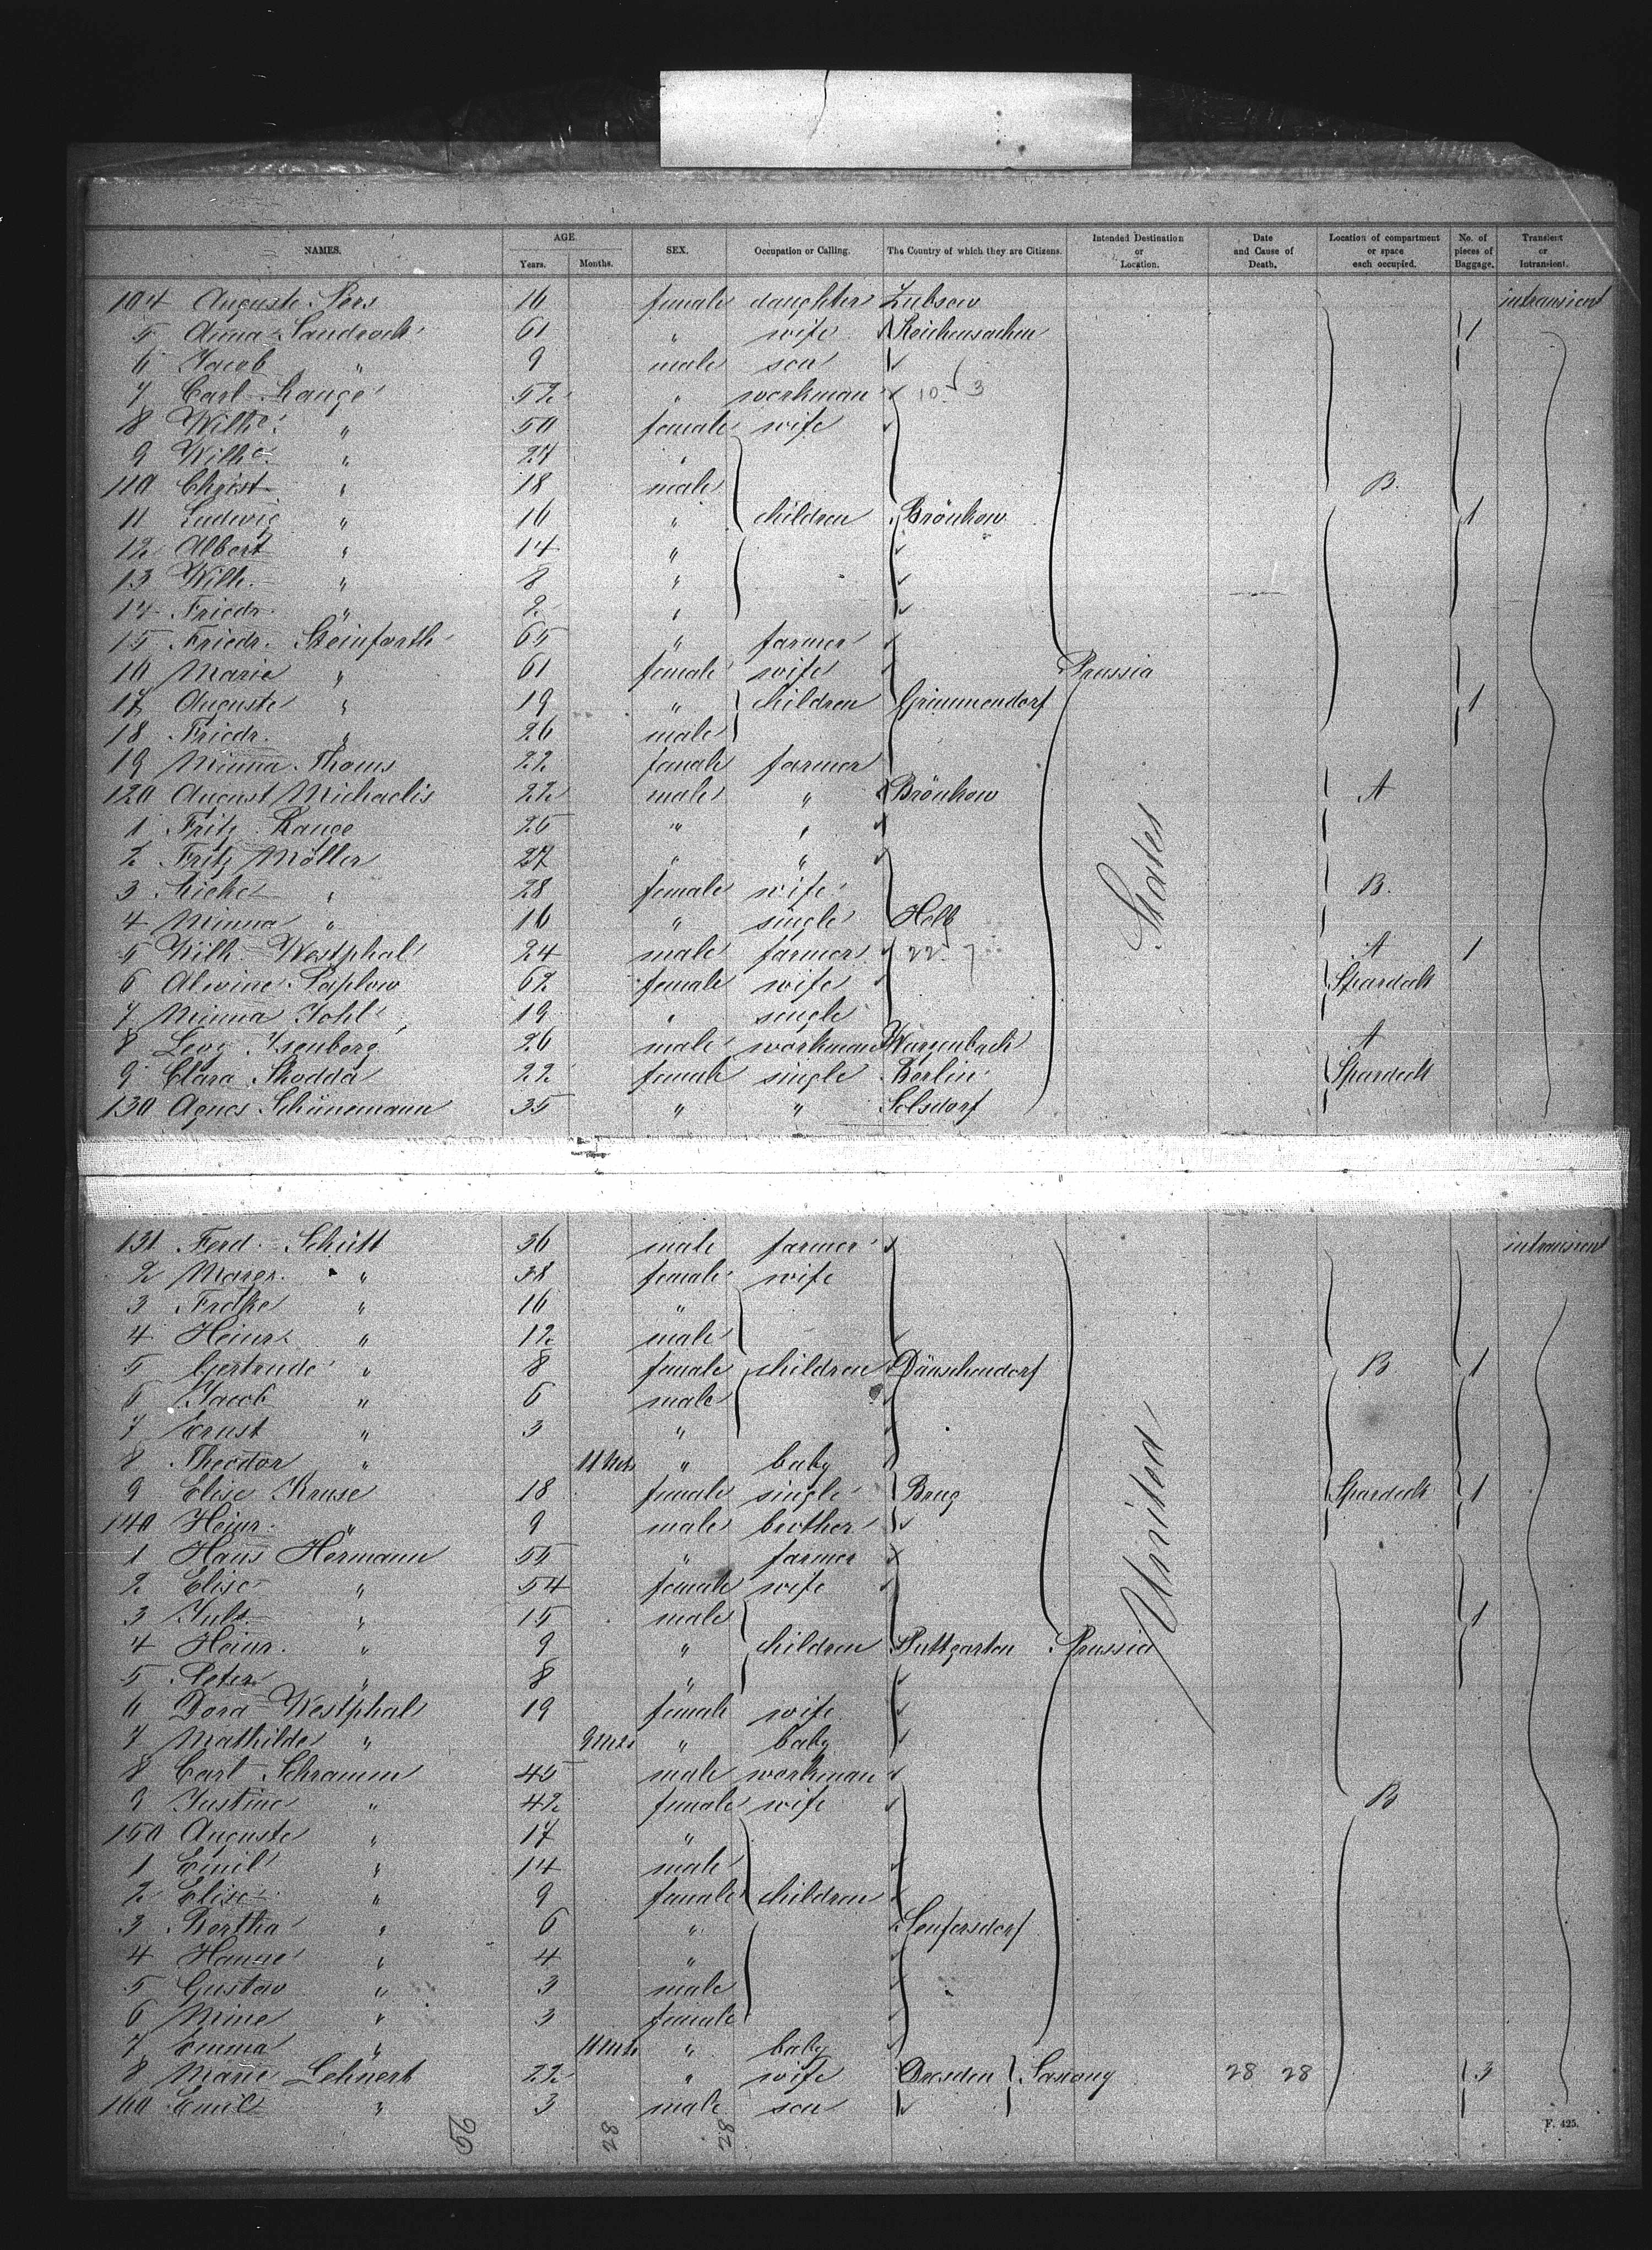 NAMES. AGE. Years. Months. SEX. Occupation or Calling. The Country of which they are Citizens. Intended Destination or Location. Date and Cause of Death. Location of compartment or space each occupied. No. of pieces of Baggage. Transient or Intransient.
104 Auguste 16 female daughter intransient
5 Anna Sandrock 61 " wife Reichensachen 1
6 Jacob " 9 male son
7 Carl Range 52 " workman 10 3
8 Wilhe. " 50 female wife
9 Wilhe. " 24 "
110 Christ " 18 male B.
11 Ludwig " 16 " children Brönkow 1
12 Albert " 14 "
13 Wilh. " 8 "
14 Friedr. " 2 "
15 Friedr. Steinforth 65 " farmer
16 Marie " 61 female wife Prussia
17 Auguste " 19 " children 1
18 Friedr. " 26 male
19 Minna Thoms 22 female farmer
120 August Michaelis 22 male " Brönkow A
1 Fritz Range 25 " "
2 Fritz Möller 27 " "
3 Rieke " 28 female wife B.
4 Minna " 16 " single
5 Wilh. Westphal 24 male farmer 22 7 A 1
6 Alwine 62 female wife Spardeck
7 Minna 19 " single
8 Levy Isenberg 26 male workman A
9 Clara Skodda 22 female single Berlin Spardeck
130 Agnes Schünemann 35 " "
States
131 Ferd. Schütt 36 male farmer intransient
2 Margr. " 38 female wife
3 Frdke " 16 "
4 Heinr. " 12 male
5 Gertrude " 8 female children Dänschendorf B 1
6 Jacob " 6 male
7 Ernst " 3 "
8 Theodor " 11 Mts " baby
9 Elise Kruse 18 female single Burg Spardeck 1
140 Heinr. " 9 male brother
1 Hans Hermann 55 " farmer
2 Elise " 54 female wife
3 Juls. " 15 male 1
4 Heinr. " 9 " children Puttgarten Prussia
5 Peter " 8 "
6 Dora Westphal 19 female wife
7 Mathilde " 9 Mts " baby
United
8 Carl Schramm 45 male workman
9 Justine " 42 female wife B
150 Auguste " 17 "
1 Emil " 14 male
2 Elise " 9 female children
3 Bertha " 6 " Seufersdorf
4 Hanne " 4 "
5 Gustav " 3 male
6 Mine " 3 female
7 Emma " 11 Mts " baby
8 Marie Lehnert 22 " wife Dresden Saxony 28 28 3
160 Emil " 3 male son
F. 425.
25 82 82